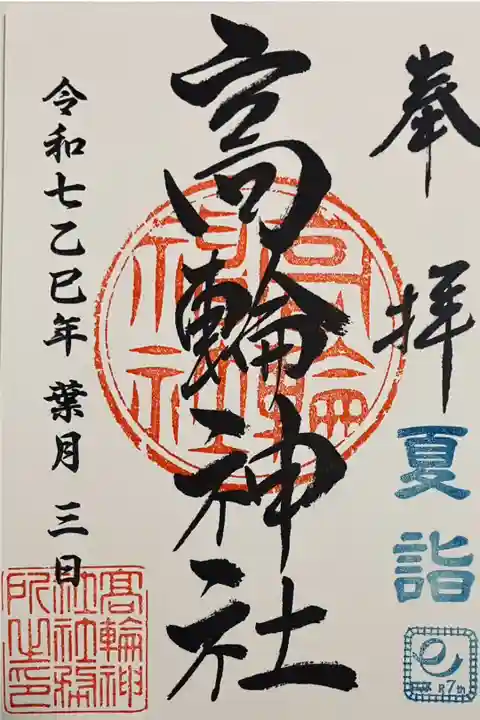 奉拝
夏詣
R7th
高輪神社
高輪神社
令和七乙巳年 葉月 三日
高輪神
社社務
所之印